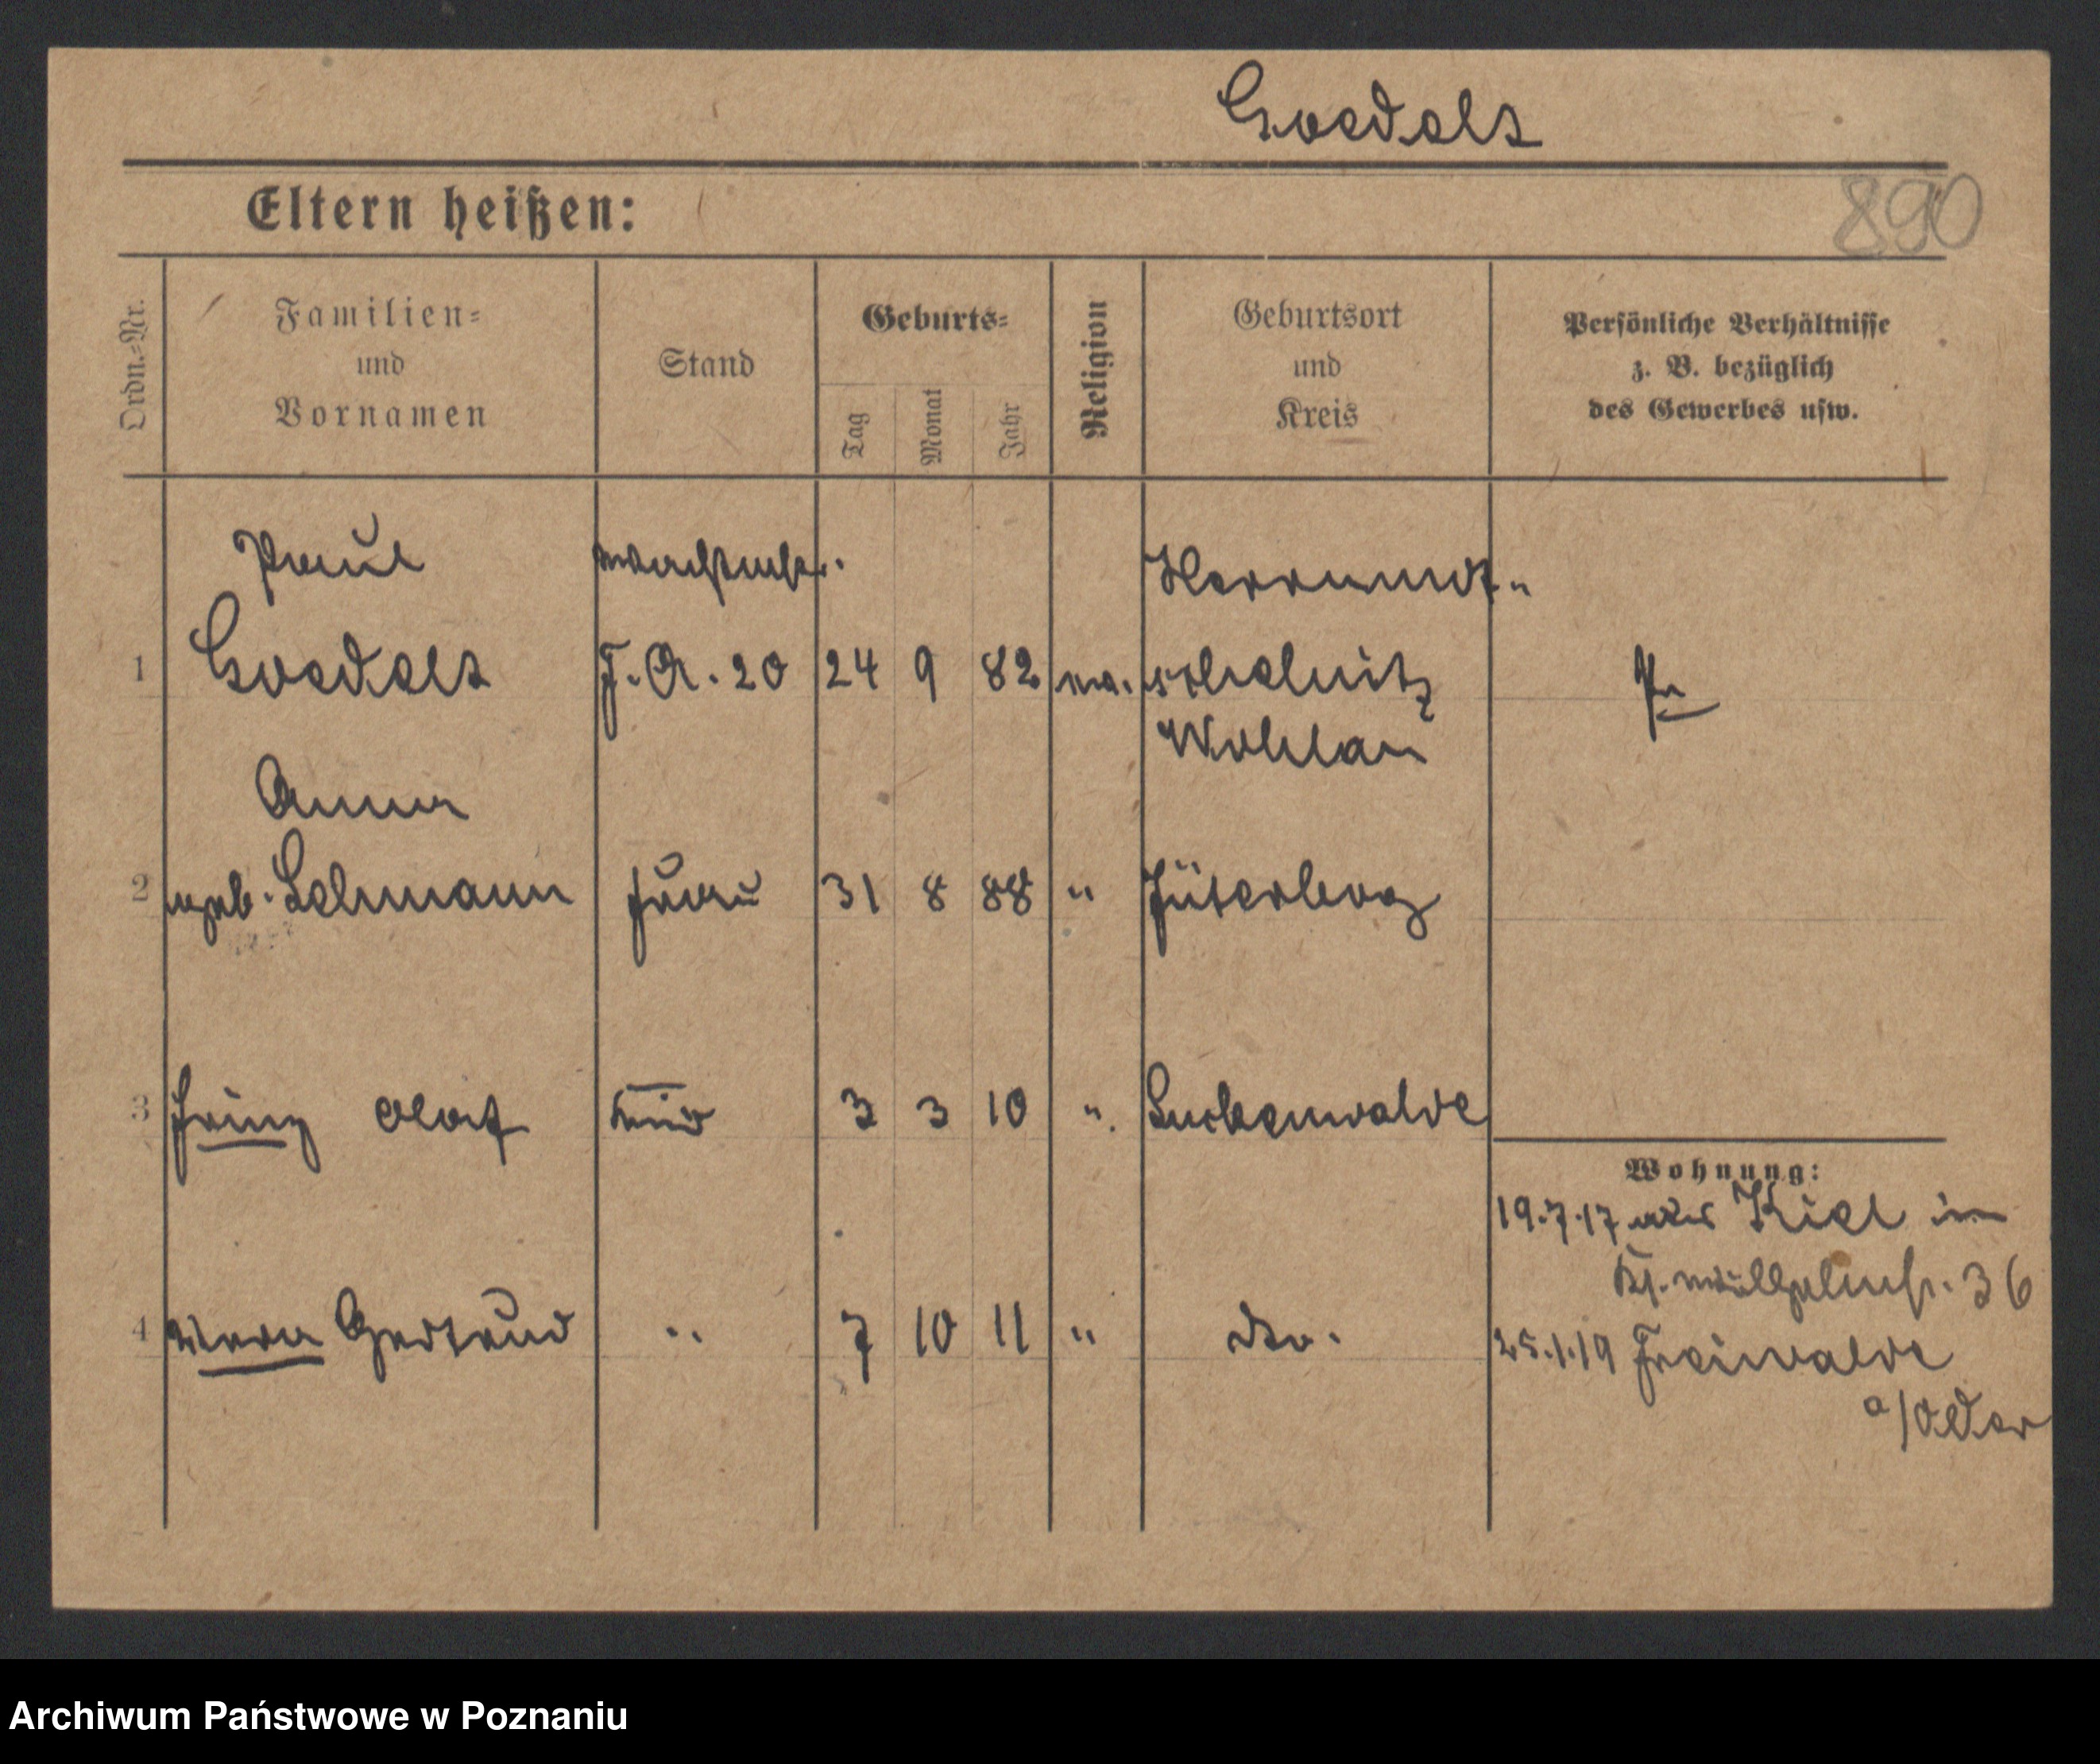 Goedelt
Eltern heißen:
890
Ordn.-Nr.
Familien-
und
Vornamen
Stand
Geburts-
Tag
Monat
Jahr
Religion
Geburtsort
und
Kreis
Persönliche Verhältnisse
z. B. bezüglich
des Gewerbes usw.
Paul
Herrnmot-
1 Goedelt F. A. 20 24 9 82 schelnitz Pr
Wohlau
Anna
2 geb. Lehmann Frau 31 8 88 " Jüterbog
3 Heinz Olaf Kind 3 3 10 " Luckenwalde
Wohnung:
19.7.17 Kiel in
36
4 Wera Gertrud " 7 10 11 " dto.
25.1.19 Freiwalde
a/Oder
Archiwum Państwowe w Poznaniu